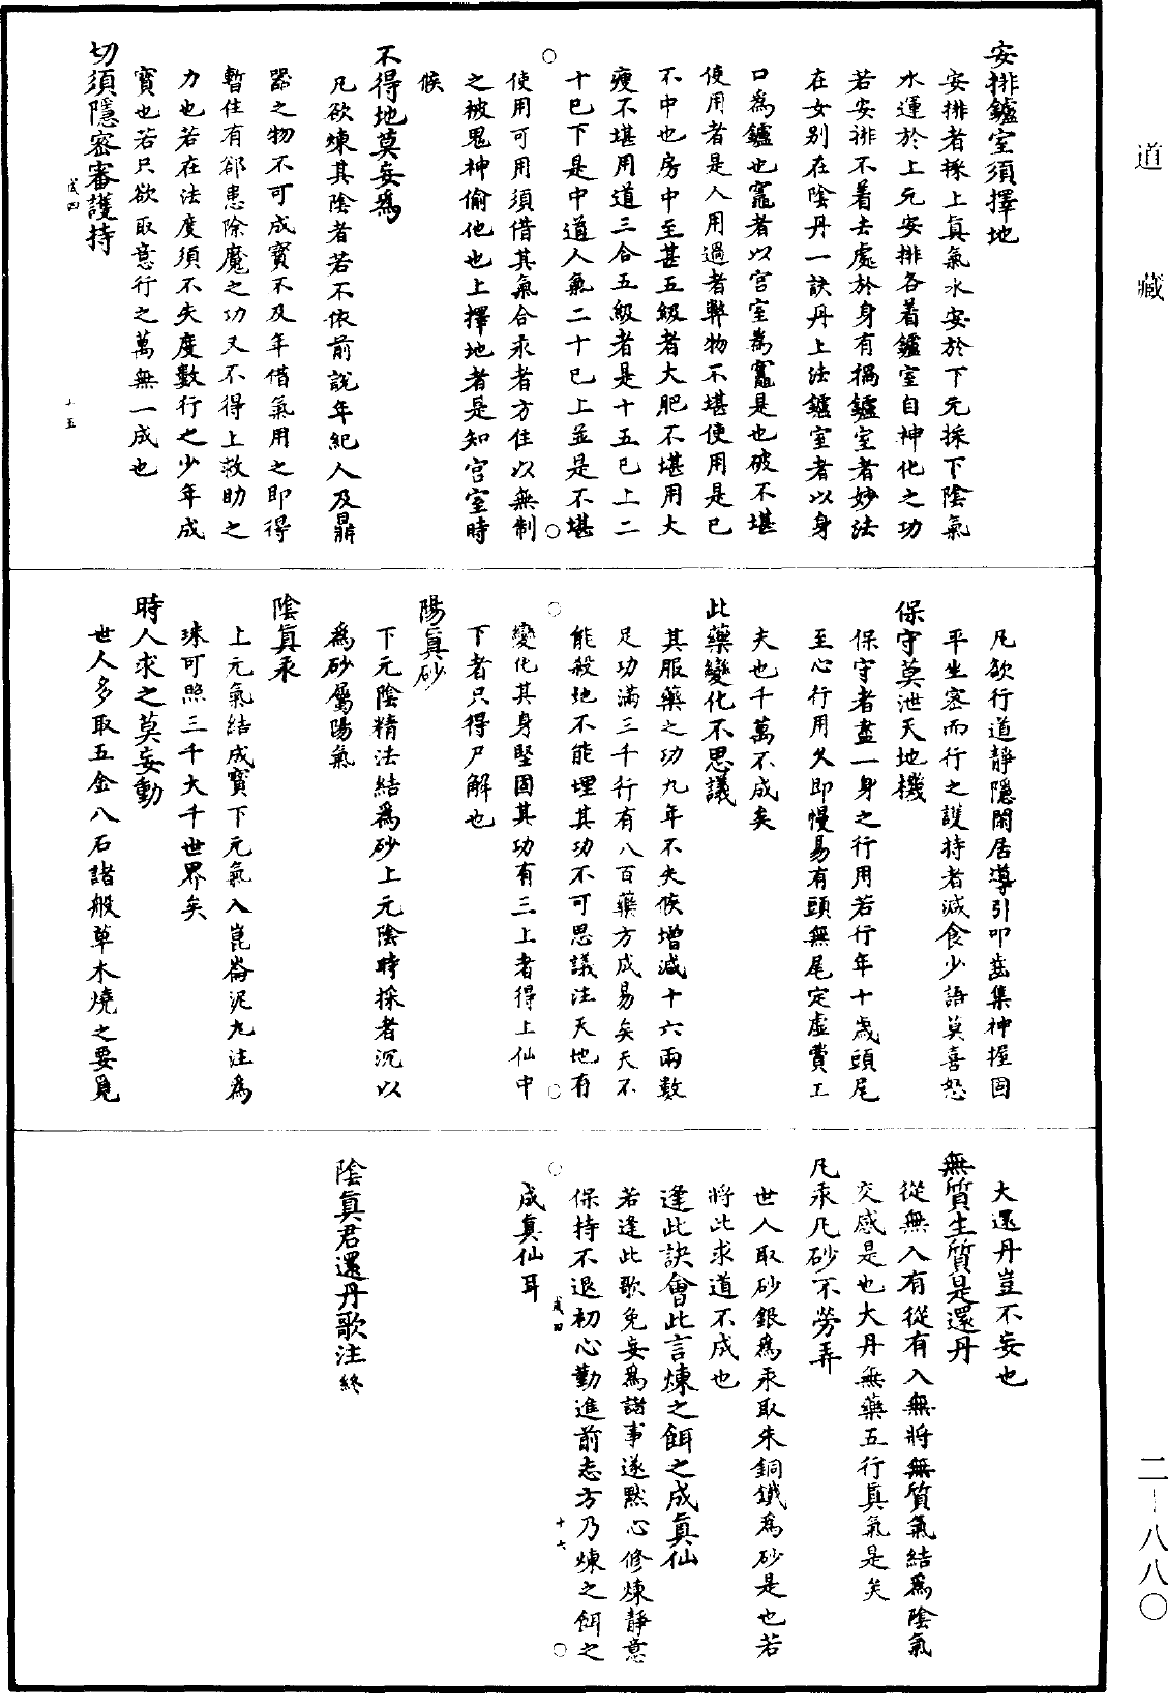 道藏
安排鑪室須擇地
安排者採上真氣水安於下元採下陰氣
水運於上元安排各着鑪室自神化之功
若安排不着去處於身有損鑪室者妙法
在女別在陰丹一訣丹上法鑪室者以身
口為鑪也竈者以宮室為竈是也破不堪
使用者是人用過者弊物不堪使用是已
不中也房中至甚五級者大肥不堪用大
瘦不堪用道三合五級者是十五已上二
十已下是中道人氣二十已上並是不堪
使用可用須借其氣合汞者方住以無制
之被鬼神偷他也上擇地者是知宮室時
候
不得地莫妄為
凡欲煉其陰者若不依前說年紀人及鼎
器之物不可成寶不及年借氣用之即得
暫住有郤患除魔之功又不得上救助之
力也若在法度須不失度數行之少年成
寶也若只欲取意行之萬無一成也
切須隱密審護持
成四 十五
凡欲行道靜隱閑居導引叩齒集神握固
平坐密而行之護持者減食少語莫喜怒
保守莫泄天地機
保守者盡一身之行用若行年十歲頭尾
至心行用久即慢易有頭無尾定虛費工
夫也千萬不成矣
此藥變化不思議
其服藥之功九年不失候增減十六兩數
足功滿三千行有八百藥方成易矣天不
能殺地不能埋其功不可思議注天地有
變化其身堅固其功有三上者得上仙中
下者只得尸解也
陽真砂
下元陰精法結為砂上元陰時採者沉以
為砂屬陽氣
陰真汞
上元氣結成寶下元氣入崑崙泥丸注為
珠可照三千大千世界矣
時人求之莫妄動
世人多取五金八石諸般草木燒之要覓
大還丹豈不妄也
無質生質是還丹
從無入有從有入無將無質氣結為陰氣
交感是也大丹無藥五行真氣是矣
凡汞凡砂不勞弄
世人取砂銀為汞取朱銅鐵為砂是也若
將此求道不成也
逢此訣會此言煉之餌之成真仙
若逢此歌免妄為諸事遂黙心修煉靜意
保持不退初心勤進前志方乃煉之餌之
成真仙耳
成四 十六
陰真君還丹歌注終
二-八八〇